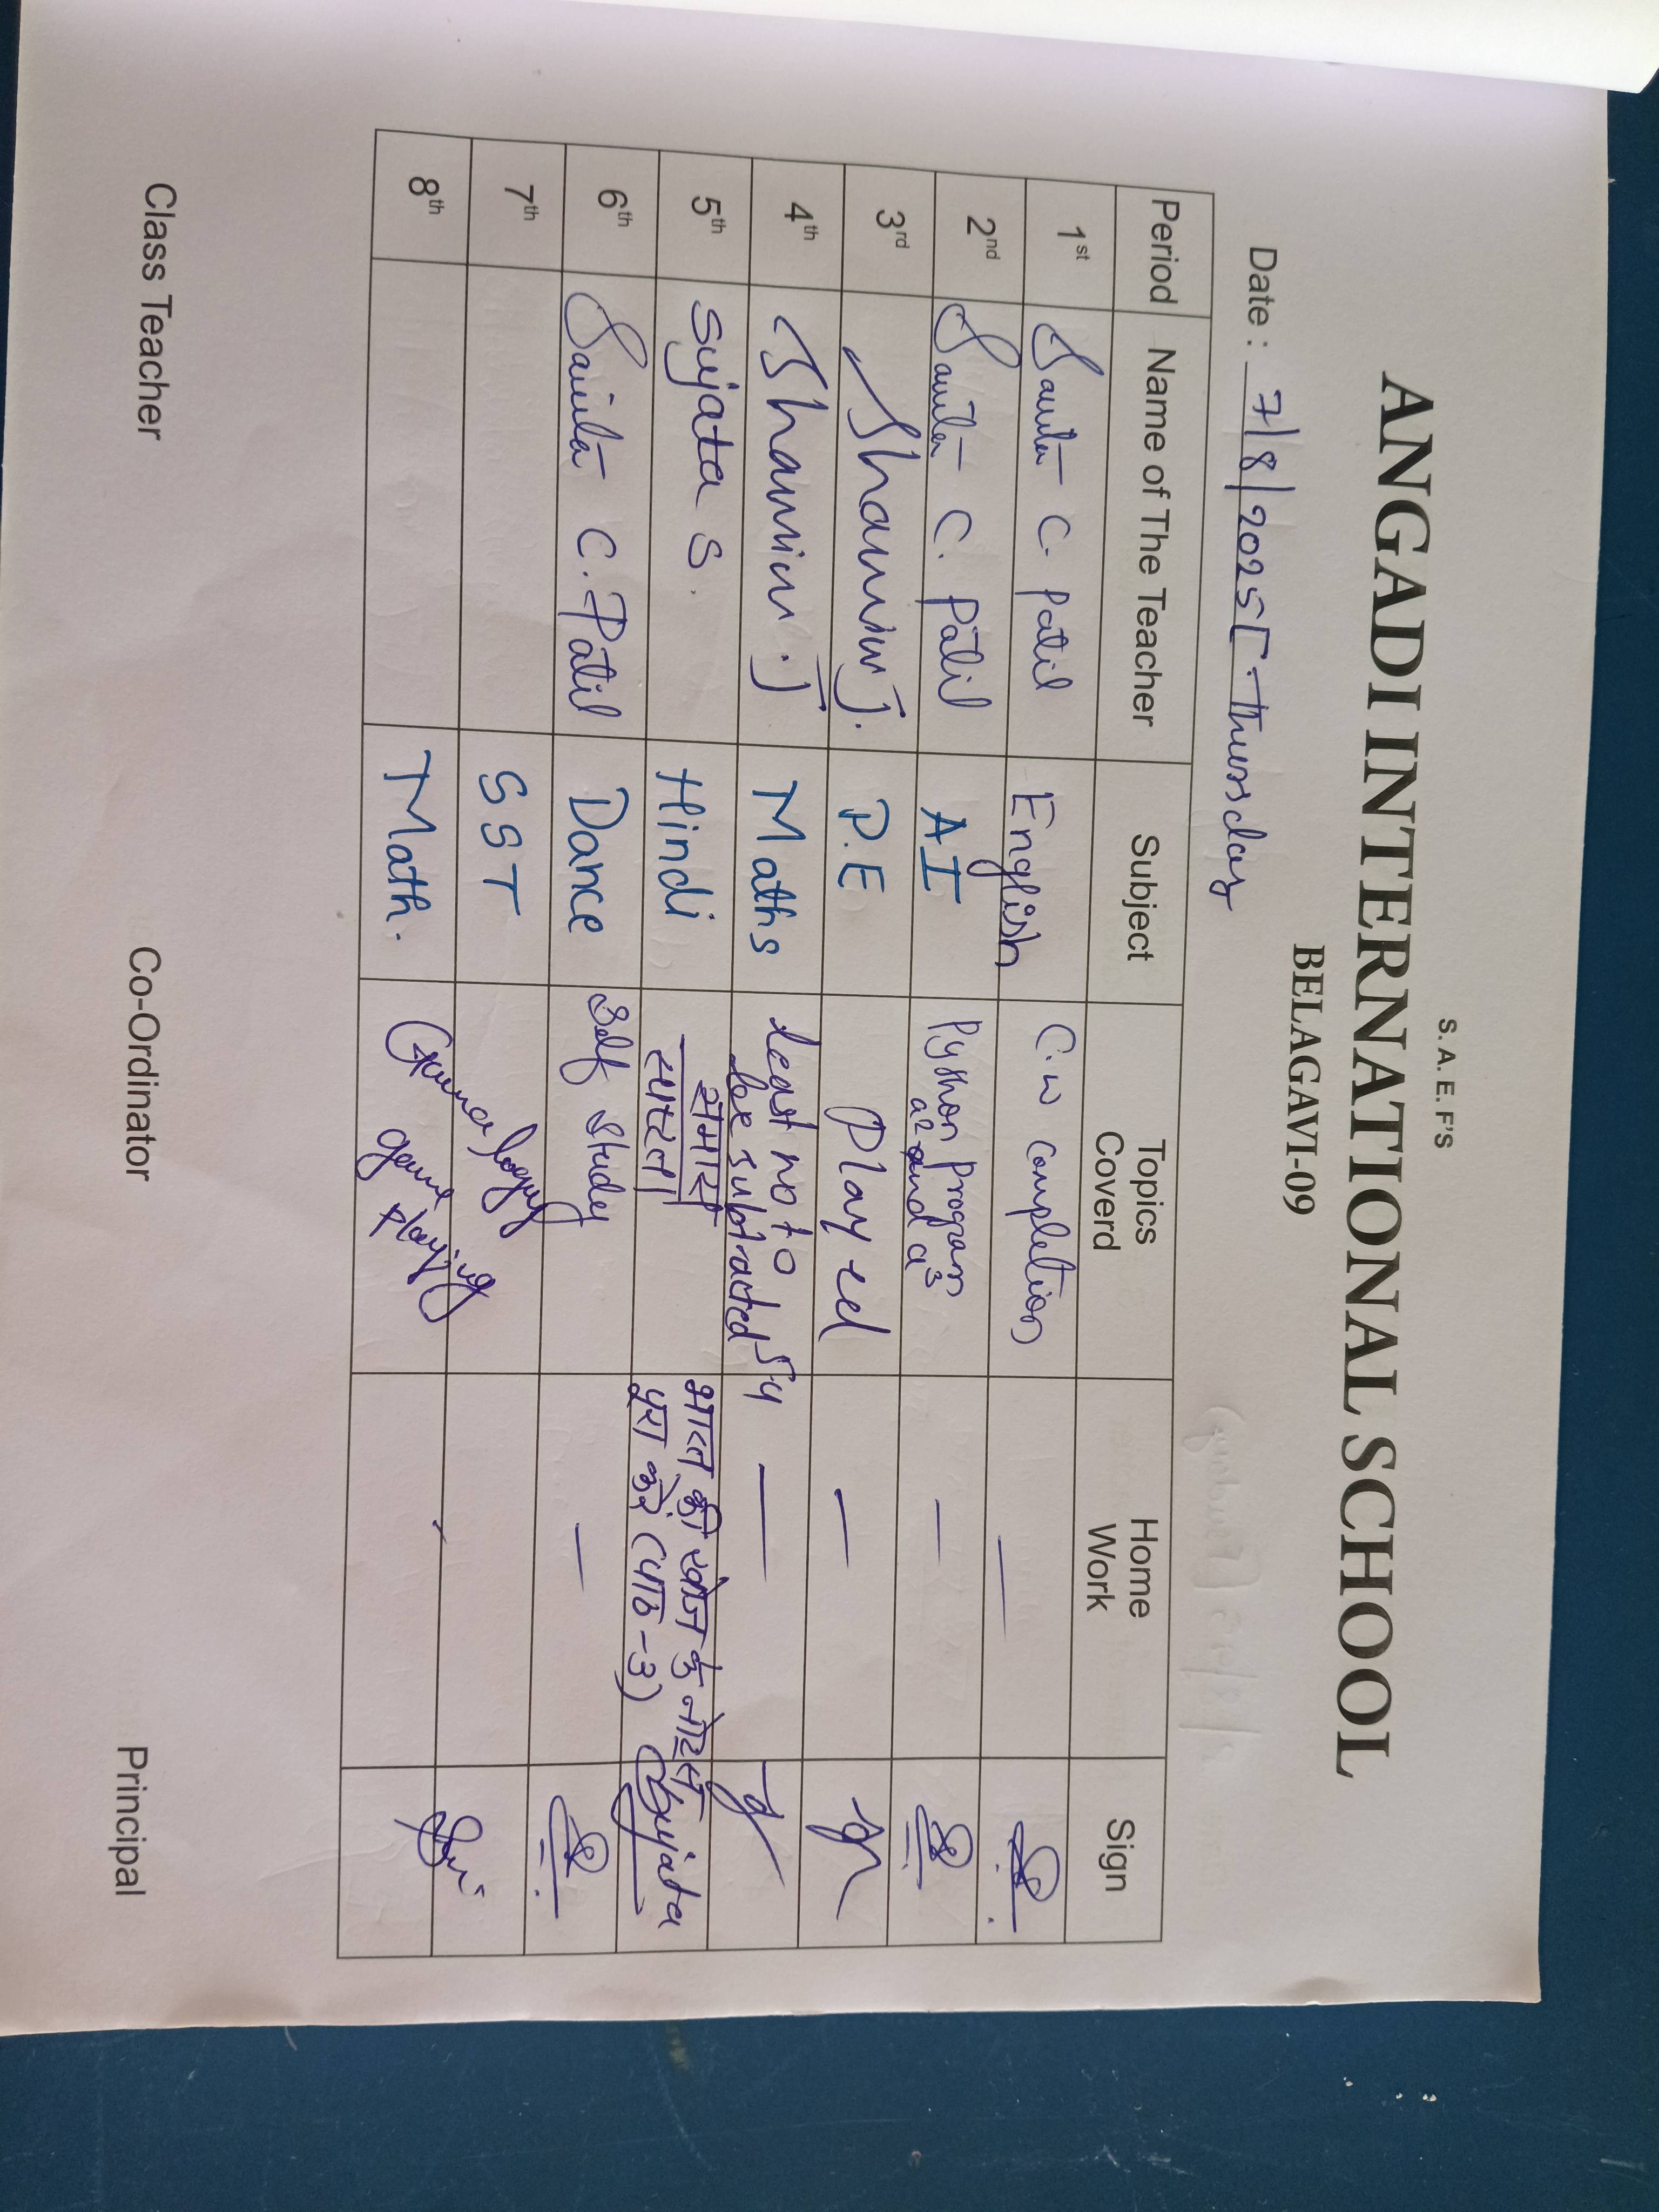 S. A. E. F'S
ANGADI INTERNATIONAL SCHOOL
BELAGAVI-09
Date : 7/8/2025 Thursday
Period Name of The Teacher Subject Topics Coverd Home Work Sign
1st C. Patil English C.W completion —
2nd C. Patil AI Python program
a² and a³ —
3rd P.E Played —
4th Maths least no to
be subtracted —
5th Sujata S. Hindi समास
भारत की खोज के नोट्स
पूरा करें (पाठ-3) Sujata
6th C. Patil Dance Self study —
7th SST
8th Math.
game playing
Class Teacher Co-Ordinator Principal